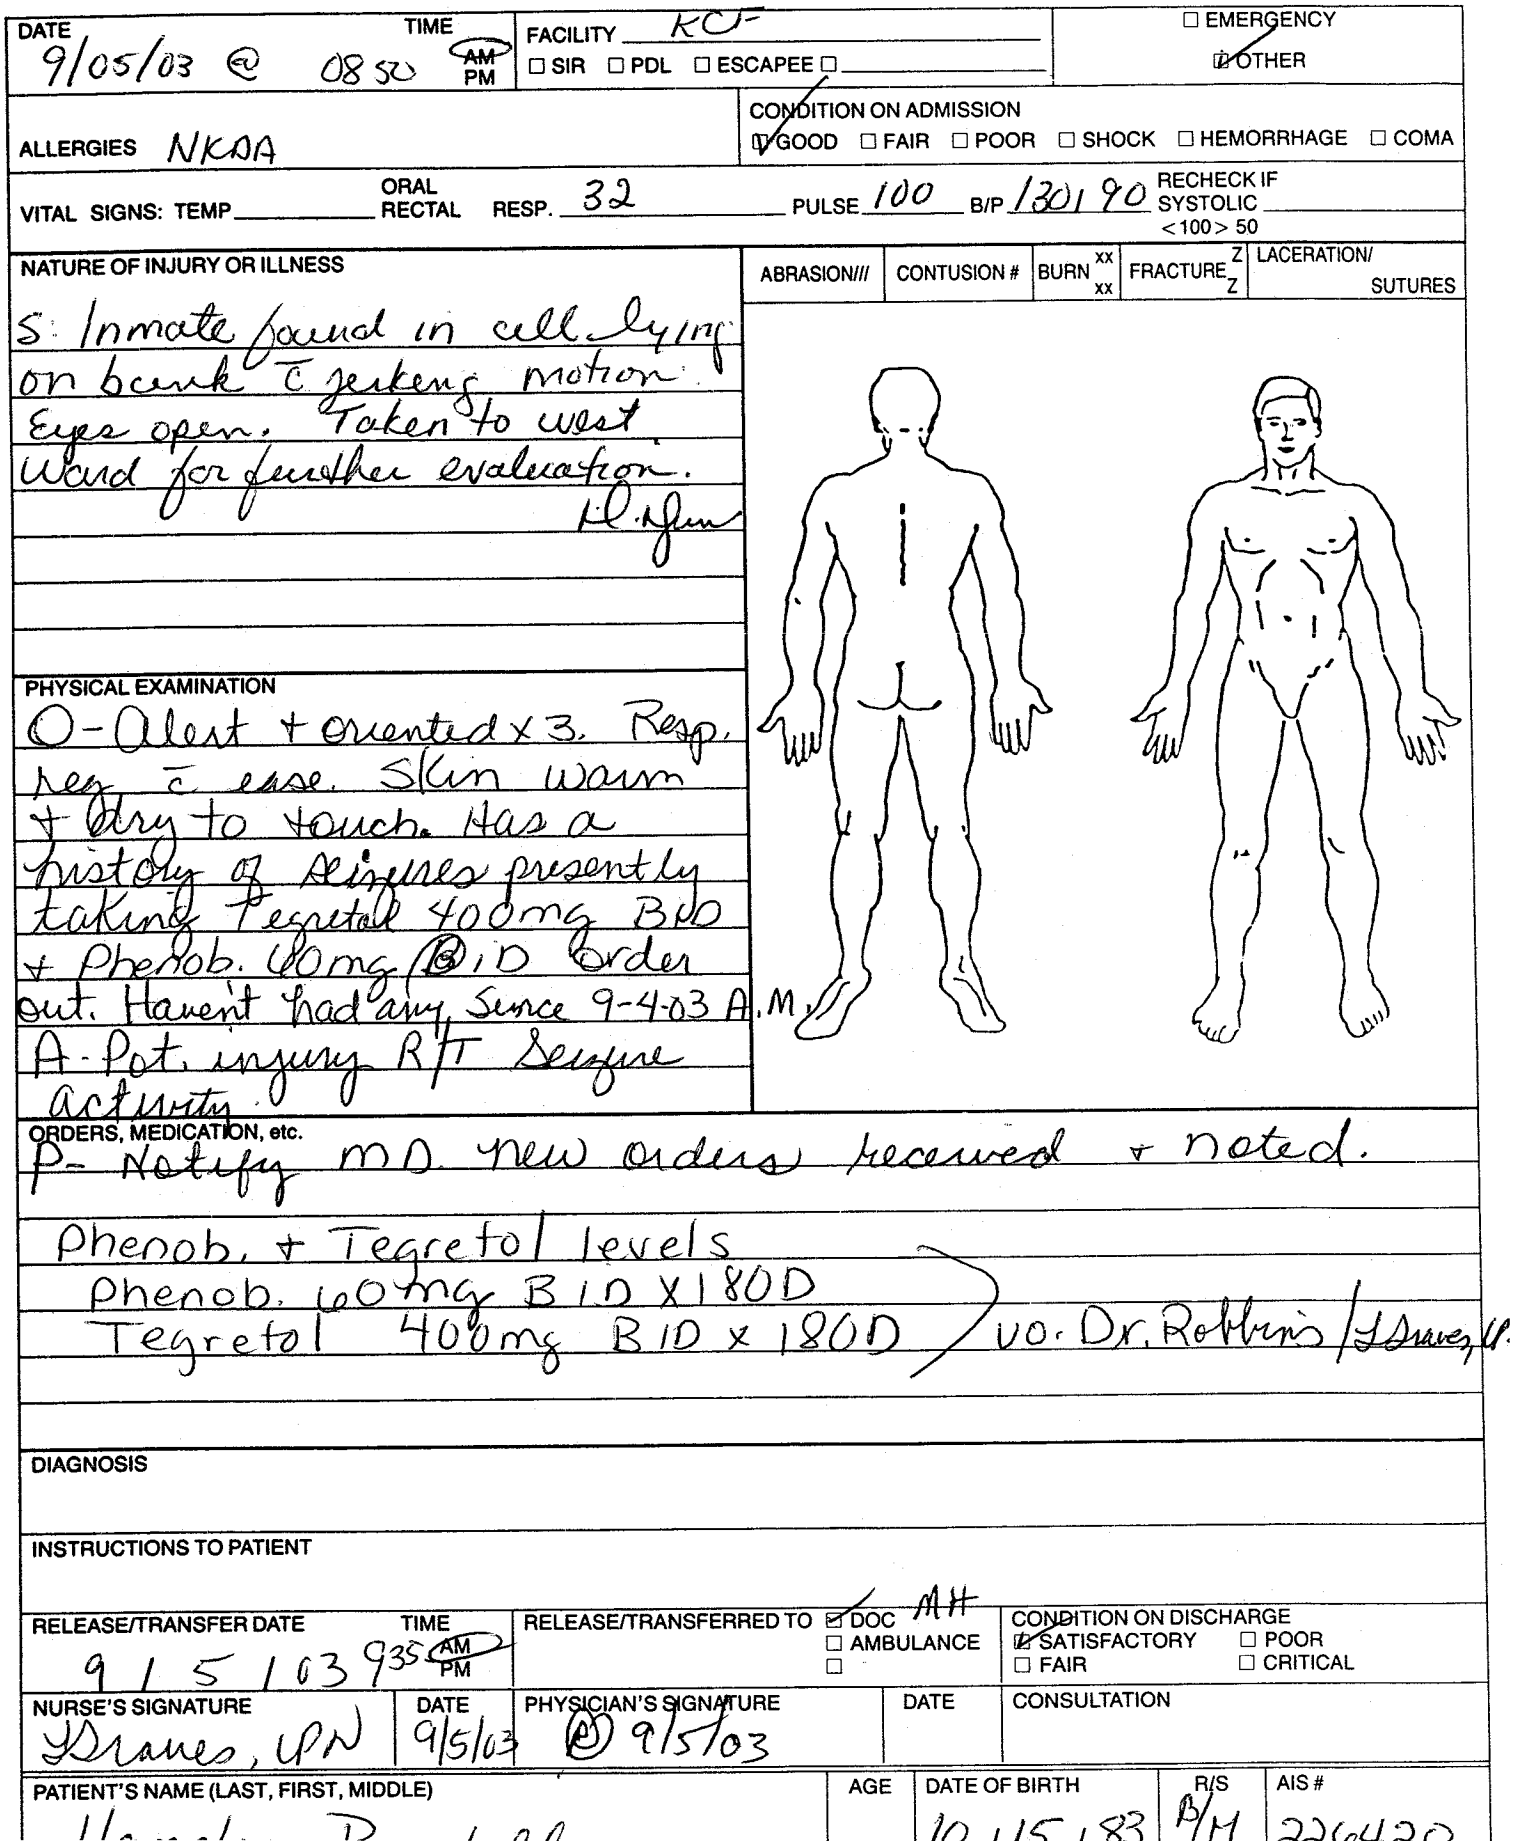 DATE TIME FACILITY KCF ☐ EMERGENCY
9/05/03 @ 0850 AM PM ☐ SIR ☐ PDL ☐ ESCAPEE ☐ ☑ OTHER
CONDITION ON ADMISSION
ALLERGIES NKDA ☑ GOOD ☐ FAIR ☐ POOR ☐ SHOCK ☐ HEMORRHAGE ☐ COMA
VITAL SIGNS: TEMP ORAL RECTAL RESP. 32 PULSE 100 B/P 130/90 RECHECK IF SYSTOLIC <100> 50
NATURE OF INJURY OR ILLNESS
ABRASION/// CONTUSION # BURN xx xx FRACTURE Z Z LACERATION/ SUTURES
S: Inmate found in cell lying
on bunk c̄ jerking motion.
Eyes open. Taken to west
Ward for further evaluation.
PHYSICAL EXAMINATION
O-Alert + oriented x 3. Resp.
reg c̄ ease. Skin warm
+ dry to touch. Has a
history of seizures presently
taking Tegretol 400mg BID
+ Phenob. 60mg BiD order
out. Havent had any since 9-4-03 A.M.
A-Pot. injury R/T Seizure
activity.
ORDERS, MEDICATION, etc.
P- Notify MD. new orders received + noted.
Phenob. + Tegretol levels
Phenob. 60mg BID X 180D
Tegretol 400mg BID x 180D vo. Dr. Robbins / LGraves, LP.
DIAGNOSIS
INSTRUCTIONS TO PATIENT
RELEASE/TRANSFER DATE TIME RELEASE/TRANSFERRED TO ☑ DOC MH CONDITION ON DISCHARGE
9/5/03 935 AM PM ☐ AMBULANCE ☑ SATISFACTORY ☐ POOR
☐ ☐ FAIR ☐ CRITICAL
NURSE'S SIGNATURE DATE PHYSICIAN'S SIGNATURE DATE CONSULTATION
LGraves, LPN 9/5/03 9/5/03
PATIENT'S NAME (LAST, FIRST, MIDDLE) AGE DATE OF BIRTH R/S AIS #
10/15/83 B/M 226420